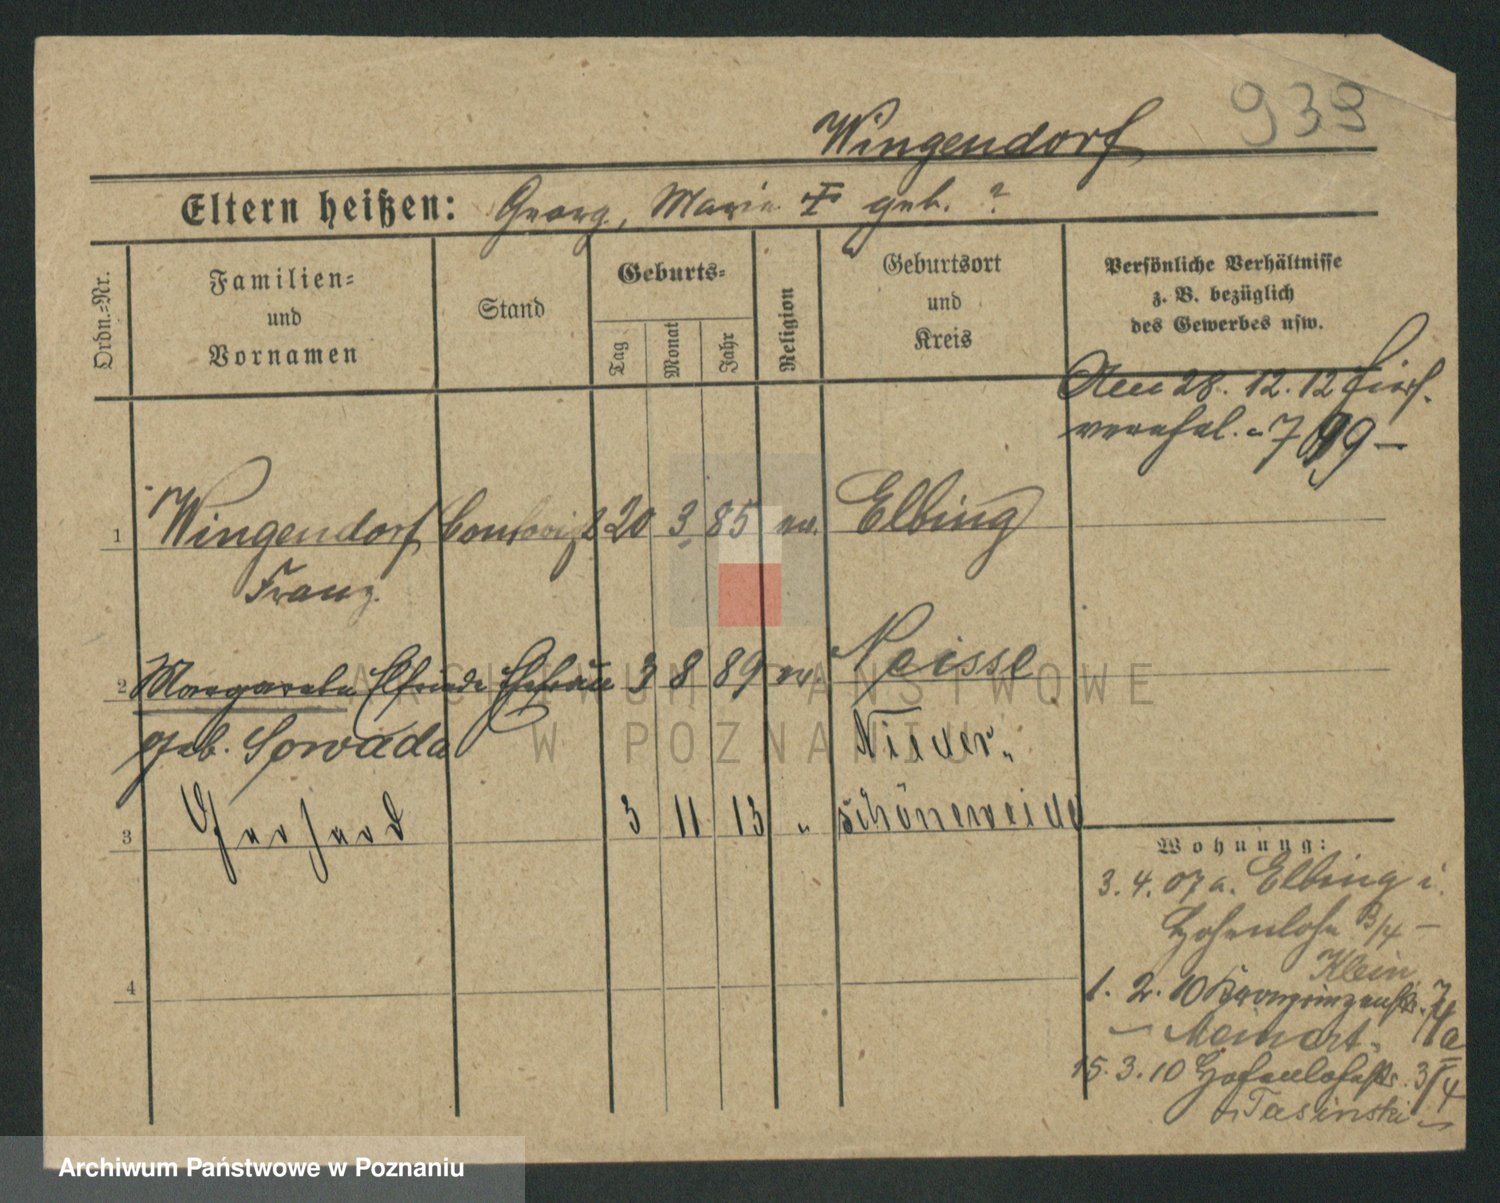 939
Wingendorf
Eltern heißen: Georg, Marie † geb. ?
Ordn.=Nr.
Familien=
und
Vornamen
Stand
Geburts=
Tag
Monat
Jahr
Religion
Geburtsort
und
Kreis
Persönliche Verhältnisse
z. B. bezüglich
des Gewerbes usw.
Am 28. 12. 12 hier
verehel.
1 Wingendorf 20 3. 85 ev. Elbing
Franz
2 Margarete Elfriede Ehefrau 3 8 89 ev. Neisse
geb. Sowada
Nieder-
3 Gerhard 3 11 13 „ schöneweide
Wohnung:
3. 4. 07 a. Elbing i.
Hohenlohe B/4 —
Klein
4
1. 2. 10 Kronprinzenstr.
Meinert
15. 3. 10 Hohenlohestr.
Tasinski
ARCHIWUM PAŃSTWOWE
W POZNANIU
Archiwum Państwowe w Poznaniu